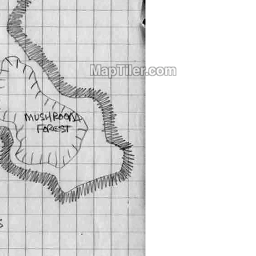 MapTiler.com
MUSHROOM
FOREST
S